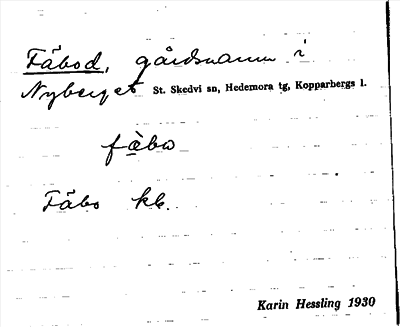 Fäbod, gårdsnamn i
Nyberget St. Skedvi sn, Hedemora tg, Kopparbergs l.
fä̀bo
Fäbo kb.
Karin Hessling 1930